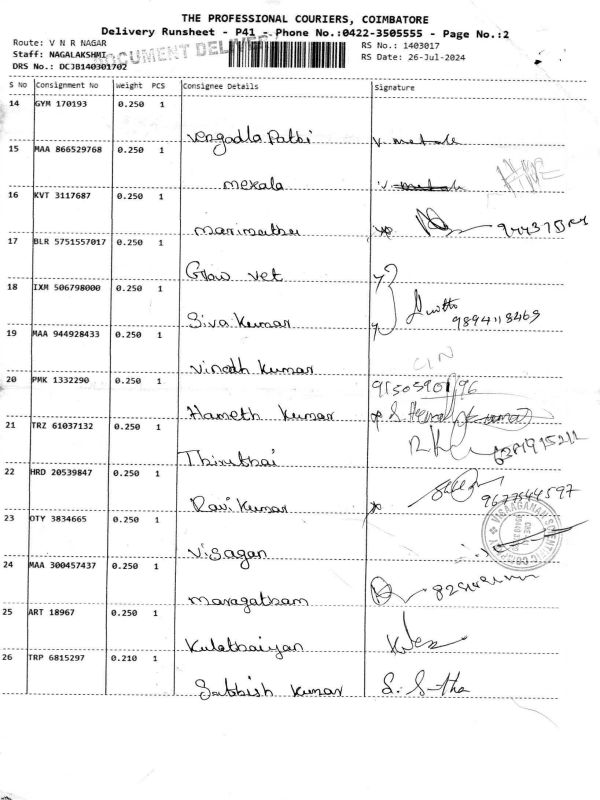 THE PROFESSIONAL COURIERS, COIMBATORE
Delivery Runsheet - P41 - Phone No.:0422-3505555 - Page No.:2
Route: V N R NAGAR
RS No.: 1403017
Staff: NAGALAKSHMI
DOCUMENT DELIVER
RS Date: 26-Jul-2024
DRS No.: DCJB140301702
S No Consignment No Weight PCS Consignee Details Signature
14 GYM 170193 0.250 1
15 MAA 866529768 0.250 1
mekala
16 KVT 3117687 0.250 1
17 BLR 5751557017 0.250 1
Grow vet
18 IXM 506798000 0.250 1
Siva Kumar
9894118469
19 MAA 944928433 0.250 1
Vinodh Kumar
20 PMK 1332290 0.250 1
Hameth Kumar
21 TRZ 61037132 0.250 1
22 HRD 20539847 0.250 1
Ravi Kumar
9677544597
23 OTY 3834665 0.250 1
Visagan
24 MAA 300457437 0.250 1
maragatham
25 ART 18967 0.250 1
26 TRP 6815297 0.210 1
Kumar